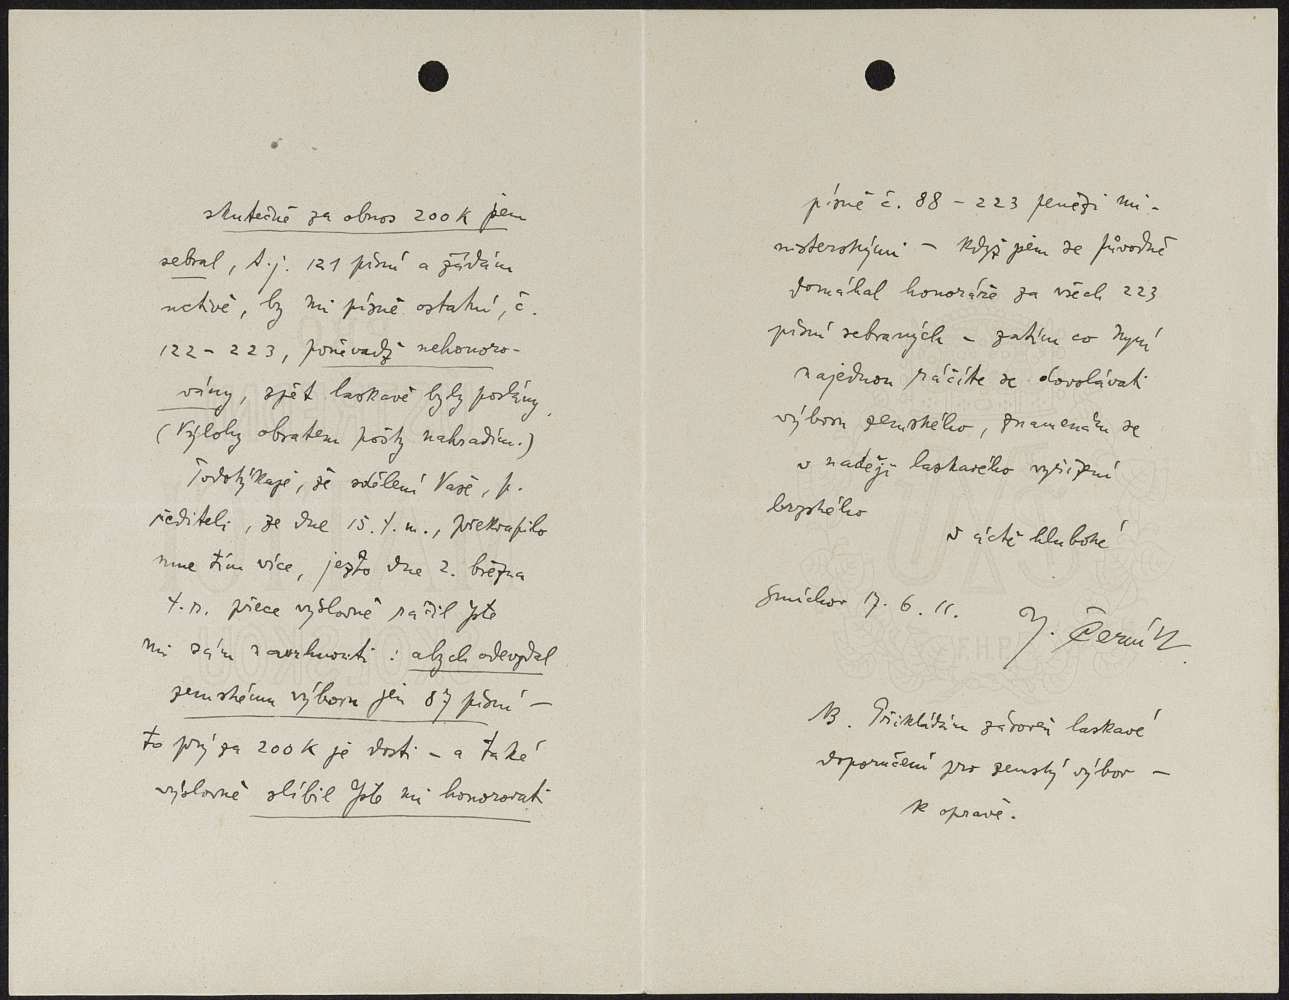 skutečně za obnos 200 K jsem
sebral, t.j. 121 písní a žádám
uctivě, by mi písně ostatní, č.
122 – 223, poněvadž nehonoro-
vány, zpět laskavě byly poslány
(Výlohy obratem pošty nahradím.)
Podotýkaje, že sdělení Vaše, p.
řediteli, ze dne 15. t. m., překvapilo
mne tím více, ježto dne 2. března
t. r. přece výslovně ráčil jste
mi sám navrhnouti: abych odevzdal
zemskému výboru jen 87 písní –
to prý za 200 K je dosti – a také
výslovně slíbil jste mi honorovati
písně č. 88 – 223 penězi mi-
nisterskými – když jsem se původně
domáhal honoráře za všech 223
písní sebraných – zatím co nyní
najednou ráčíte se dovolávati
výboru zemského, znamenám se
v naději laskavého vyřízení
brzského
v úctě hluboké
Smíchov 17. 6. 11.
J. Černík.
NB. Přikládám zároveň laskavé
doporučení pro zemský výbor –
k opravě.